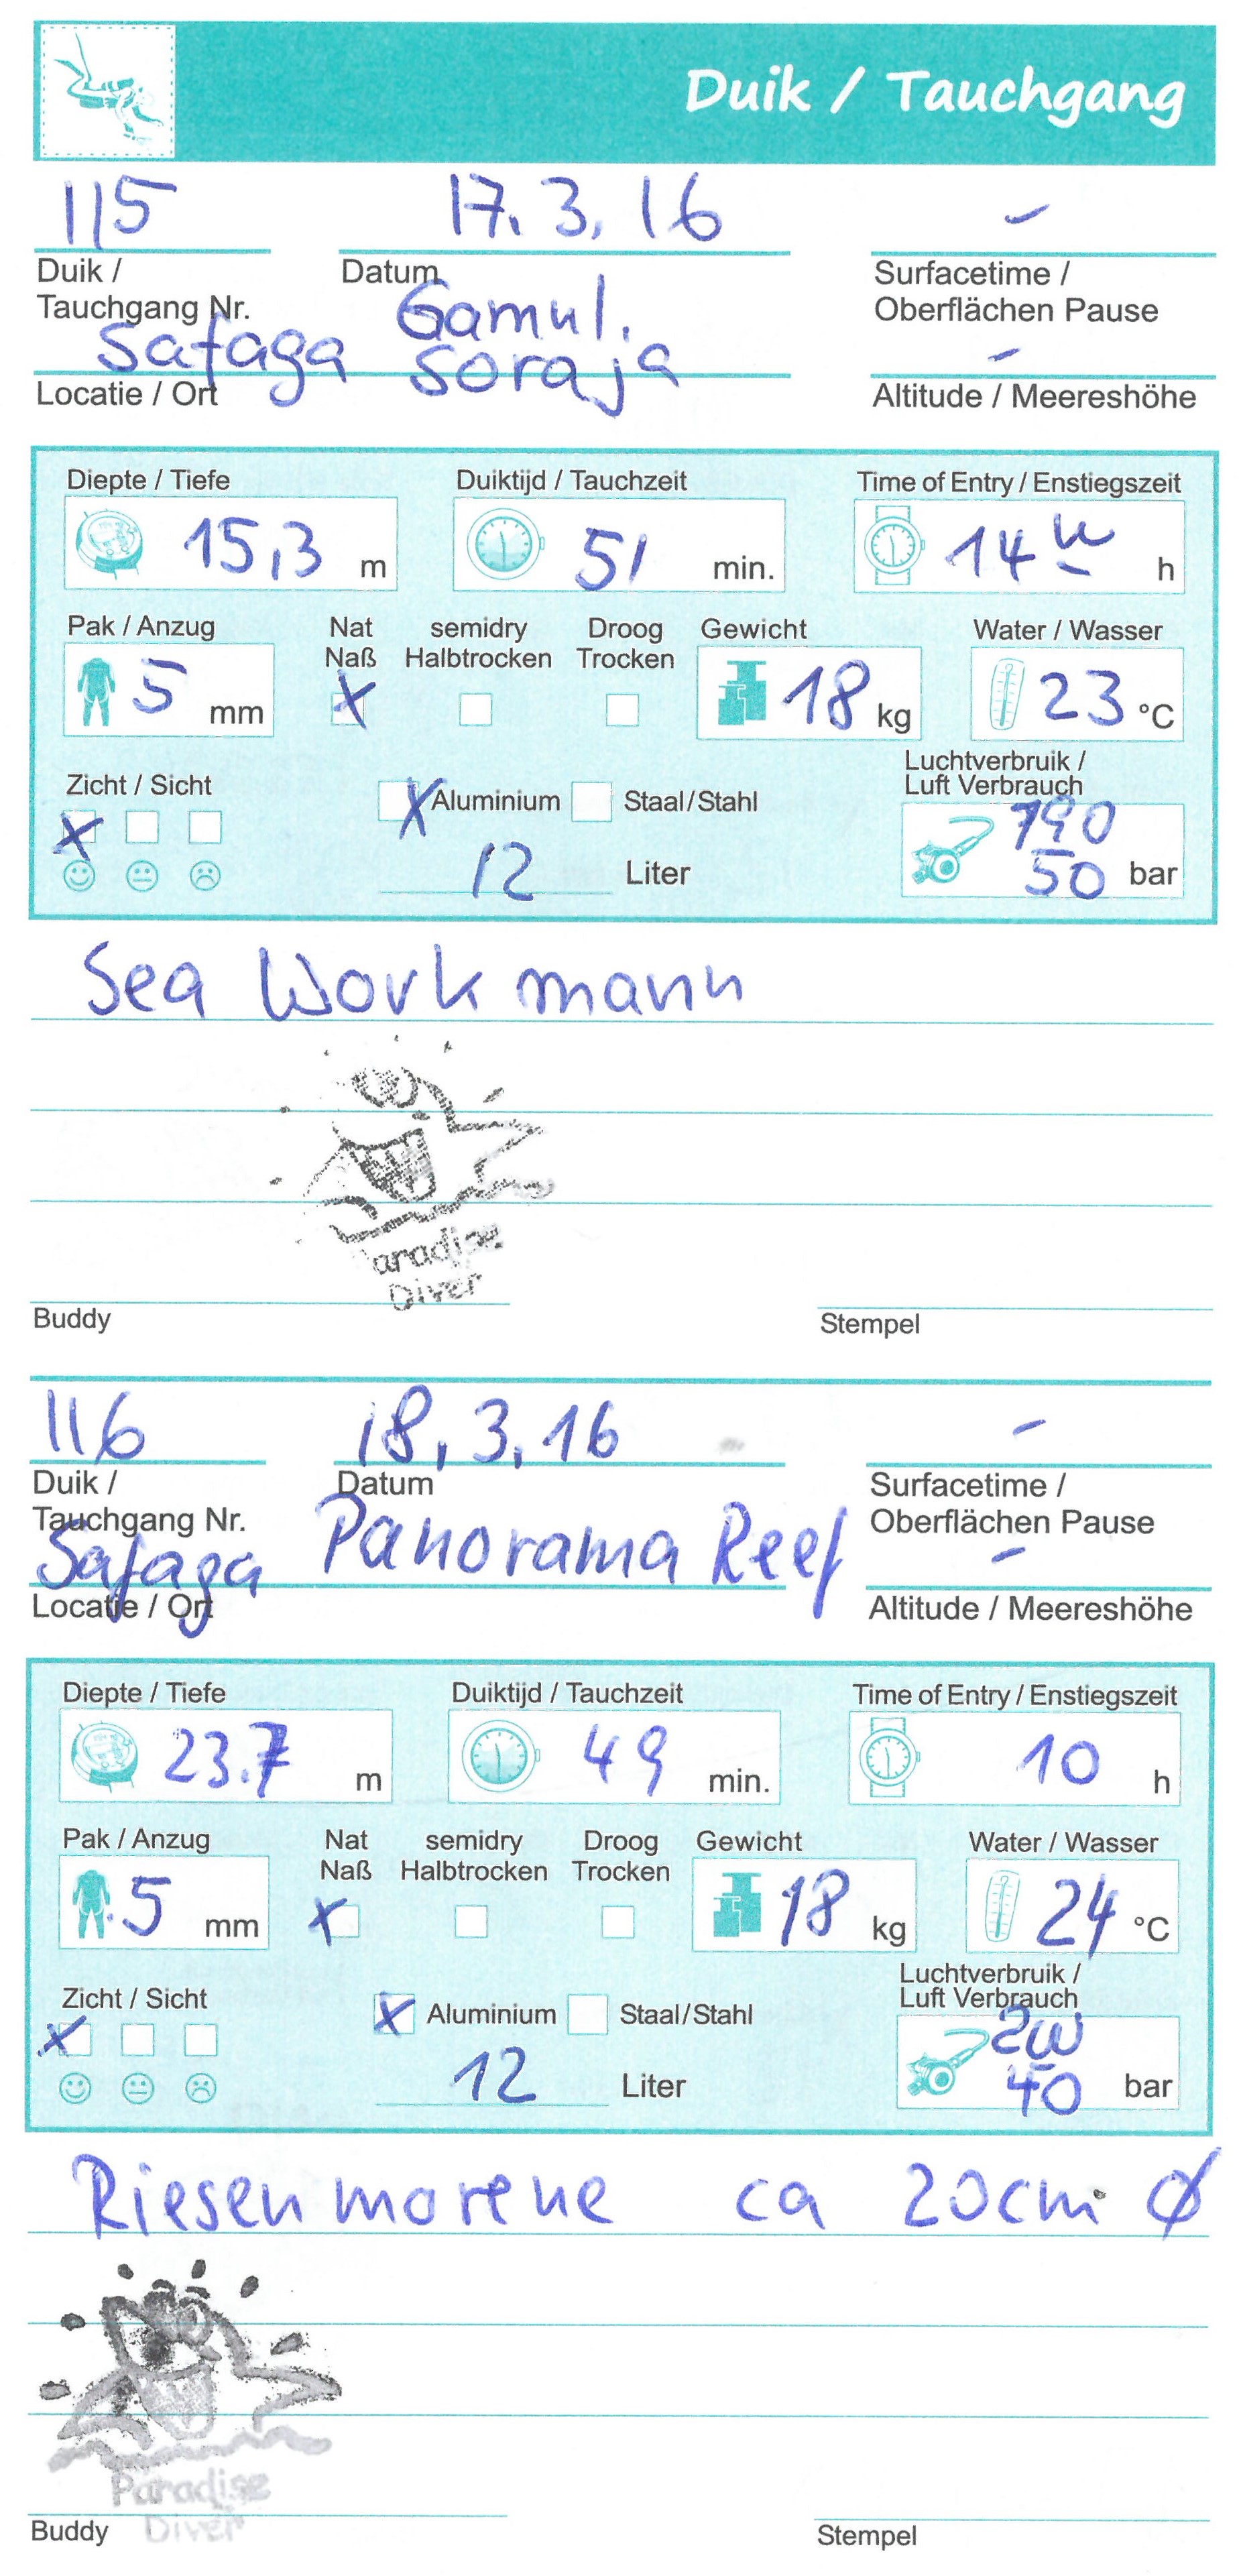 Duik / Tauchgang
115 17.3.16 -
Duik / Datum Surfacetime /
Tauchgang Nr. Oberflächen Pause
Gamul.
Safaga Soraja -
Locatie / Ort Altitude / Meereshöhe
Diepte / Tiefe Duiktijd / Tauchzeit Time of Entry / Enstiegszeit
15,3 m 51 min. 14 h
Pak / Anzug Nat semidry Droog Gewicht Water / Wasser
Naß Halbtrocken Trocken
5 mm X 18 kg 23 °C
Luchtverbruik /
Zicht / Sicht Luft Verbrauch
X X Aluminium Staal/Stahl 190
12 Liter 50 bar
Sea Workmann
Paradise
Diver
Buddy Stempel
116 18,3,16 -
Duik / Datum Surfacetime /
Tauchgang Nr. Oberflächen Pause
Safaga Panorama Reef -
Locatie / Ort Altitude / Meereshöhe
Diepte / Tiefe Duiktijd / Tauchzeit Time of Entry / Enstiegszeit
23.7 m 49 min. 10 h
Pak / Anzug Nat semidry Droog Gewicht Water / Wasser
Naß Halbtrocken Trocken
5 mm X 18 kg 24 °C
Luchtverbruik /
Zicht / Sicht Luft Verbrauch
X X Aluminium Staal/Stahl 200
12 Liter 40 bar
Riesenmorene ca 20cm Ø
Paradise
Diver
Buddy Stempel